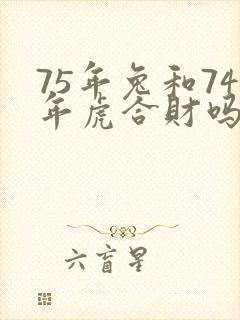 75年兔和74
年虎合財吗
六盲星